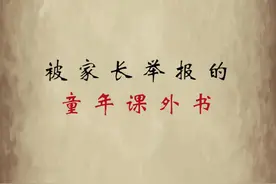 被家长举报的
童年课外书